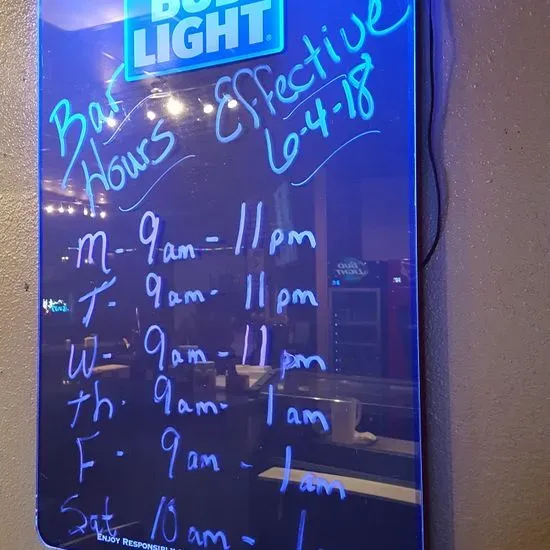 BUD
LIGHT
Bar Hours Effective
6-4-18
M- 9am - 11pm
T- 9am- 11pm
W- 9am - 11pm
th. 9am- 1am
F- 9am - 1am
Sat 10am - 1
ENJOY RESPONSIBLY